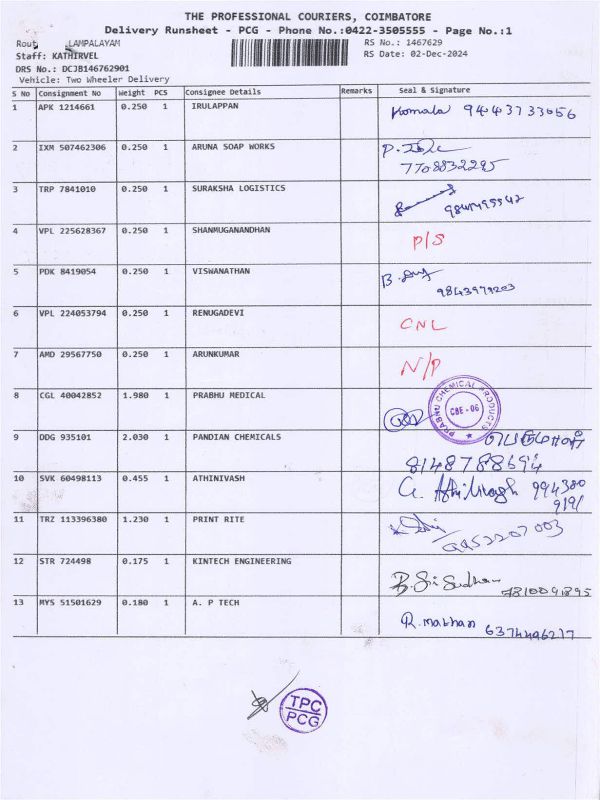 THE PROFESSIONAL COURIERS, COIMBATORE
Delivery Runsheet - PCG - Phone No.:0422-3505555 - Page No.:1
LAMPALAYAM RS No.: 1467629
Staff: KATHIRVEL RS Date: 02-Dec-2024
DRS No.: DCJB146762901
Vehicle: Two Wheeler Delivery
S No Consignment No Weight PCS Consignee Details Remarks Seal & Signature
1 APK 1214661 0.250 1 IRULAPPAN Komala 9443733056
2 IXM 507462306 0.250 1 ARUNA SOAP WORKS
7708832295
3 TRP 7841010 0.250 1 SURAKSHA LOGISTICS
4 VPL 225628367 0.250 1 SHANMUGANANDHAN P/S
5 PDK 8419054 0.250 1 VISWANATHAN
9843979203
6 VPL 224053794 0.250 1 RENUGADEVI CNL
7 AMD 29567750 0.250 1 ARUNKUMAR N/P
8 CGL 40042852 1.980 1 PRABHU MEDICAL
PRABHU CHEMICAL PRODUCTS
CBE - 06
9 DDG 935101 2.030 1 PANDIAN CHEMICALS
8148788694
10 SVK 60498113 0.455 1 ATHINIVASH 994380
9191
11 TRZ 113396380 1.230 1 PRINT RITE
9952207003
12 STR 724498 0.175 1 KINTECH ENGINEERING
B. Sri Sudhan
13 MYS 51501629 0.180 1 A. P TECH
R. mathan 6374496217
TPC
PCG